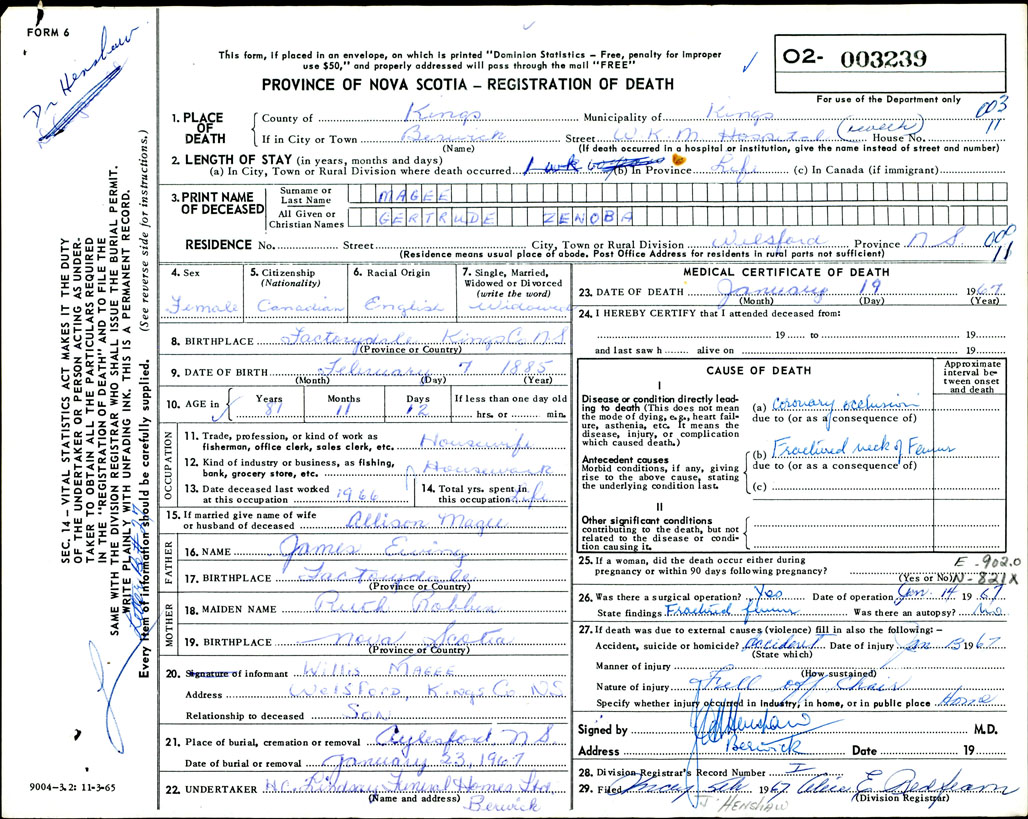 FORM 6
Dr Henshaw
This form, if placed in an envelope, on which is printed "Dominion Statistics – Free, penalty for improper
use $50," and properly addressed will pass through the mail "FREE"
O2- 003239
PROVINCE OF NOVA SCOTIA – REGISTRATION OF DEATH
For use of the Department only
003
11
1. PLACE OF DEATH
County of Kings Municipality of Kings
If in City or Town Berwick Street W.K.M. Hospital (1 week) House No.
(Name) (If death occurred in a hospital or institution, give the name instead of street and number)
2. LENGTH OF STAY (in years, months and days)
(a) In City, Town or Rural Division where death occurred 1 wk (b) In Province Life (c) In Canada (if immigrant)
3. PRINT NAME OF DECEASED
Surname or Last Name MAGEE
All Given or Christian Names GERTRUDE ZENOBA
RESIDENCE No. Street City, Town or Rural Division Welsford Province N S
(Residence means usual place of abode. Post Office Address for residents in rural parts not sufficient)
000
11
4. Sex
Female
5. Citizenship
(Nationality)
Canadian
6. Racial Origin
English
7. Single, Married,
Widowed or Divorced
(write the word)
Widowed
8. BIRTHPLACE Factorydale Kings Co. N S
(Province or Country)
9. DATE OF BIRTH February 7 1885
(Month) (Day) (Year)
10. AGE in
Years Months Days If less than one day old
81 11 12 hrs. or min.
OCCUPATION
11. Trade, profession, or kind of work as
fisherman, office clerk, sales clerk, etc. Housewife
12. Kind of industry or business, as fishing,
bank, grocery store, etc. Housework
13. Date deceased last worked
at this occupation 1966
14. Total yrs. spent in
this occupation Life
15. If married give name of wife
or husband of deceased Allison Magee
FATHER
16. NAME James Ewing
17. BIRTHPLACE Factorydale
(Province or Country)
MOTHER
18. MAIDEN NAME Ruth Robbins
19. BIRTHPLACE Nova Scotia
(Province or Country)
20. Signature of informant Willis Magee
Address Welsford Kings Co N.S.
Relationship to deceased Son
21. Place of burial, cremation or removal Aylesford N S
Date of burial or removal January 23, 1967
22. UNDERTAKER H.C. Lindsay Funeral Homes Ltd
(Name and address) Berwick
MEDICAL CERTIFICATE OF DEATH
23. DATE OF DEATH January 19 1967
(Month) (Day) (Year)
24. I HEREBY CERTIFY that I attended deceased from:
19 to 19
and last saw h alive on 19
CAUSE OF DEATH
Approximate
interval be-
tween onset
and death
I
Disease or condition directly lead-
ing to death (This does not mean
the mode of dying, e.g., heart fail-
ure, asthenia, etc. It means the
disease, injury, or complication
which caused death.)
(a) Coronary occlusion
due to (or as a consequence of)
Antecedent causes
Morbid conditions, if any, giving
rise to the above cause, stating
the underlying condition last.
(b) Fractured neck of Femur
due to (or as a consequence of)
(c)
II
Other significant conditions
contributing to the death, but not
related to the disease or condi-
tion causing it.
25. If a woman, did the death occur either during
pregnancy or within 90 days following pregnancy?
(Yes or No)
E-902.0
N-821X
26. Was there a surgical operation? Yes Date of operation Jan. 14 1967
State findings Fractured femur Was there an autopsy? No
27. If death was due to external causes (violence) fill in also the following: –
Accident, suicide or homicide? Accident Date of injury Jan 13 1967
(State which)
Manner of injury
(How sustained)
Nature of injury Fell off Chair
Specify whether injury occurred in Industry, in home, or in public place Home
Signed by Henshaw M.D.
Address Berwick Date 19
28. Division Registrar's Record Number I
29. Filed 1967
(Division Registrar)
J. HENSHAW
SEC. 14 – VITAL STATISTICS ACT MAKES IT THE DUTY
OF THE UNDERTAKER OR PERSON ACTING AS UNDER-
TAKER TO OBTAIN ALL THE PARTICULARS REQUIRED
IN THE "REGISTRATION OF DEATH" AND TO FILE THE
SAME WITH THE DIVISION REGISTRAR WHO SHALL ISSUE THE BURIAL PERMIT.
WRITE PLAINLY WITH UNFADING INK. THIS IS A PERMANENT RECORD.
Every item of information should be carefully supplied. (See reverse side for instructions.)
9004-3.2: 11-3-65